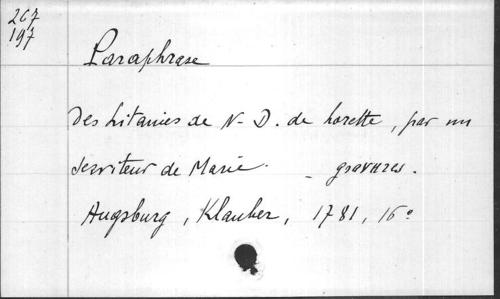 267
197
Paraphrase
des Litanies de N-D. de Lorette, par un
serviteur de Marie. - gravures.
Augsburg, Klauber, 1781, 16°